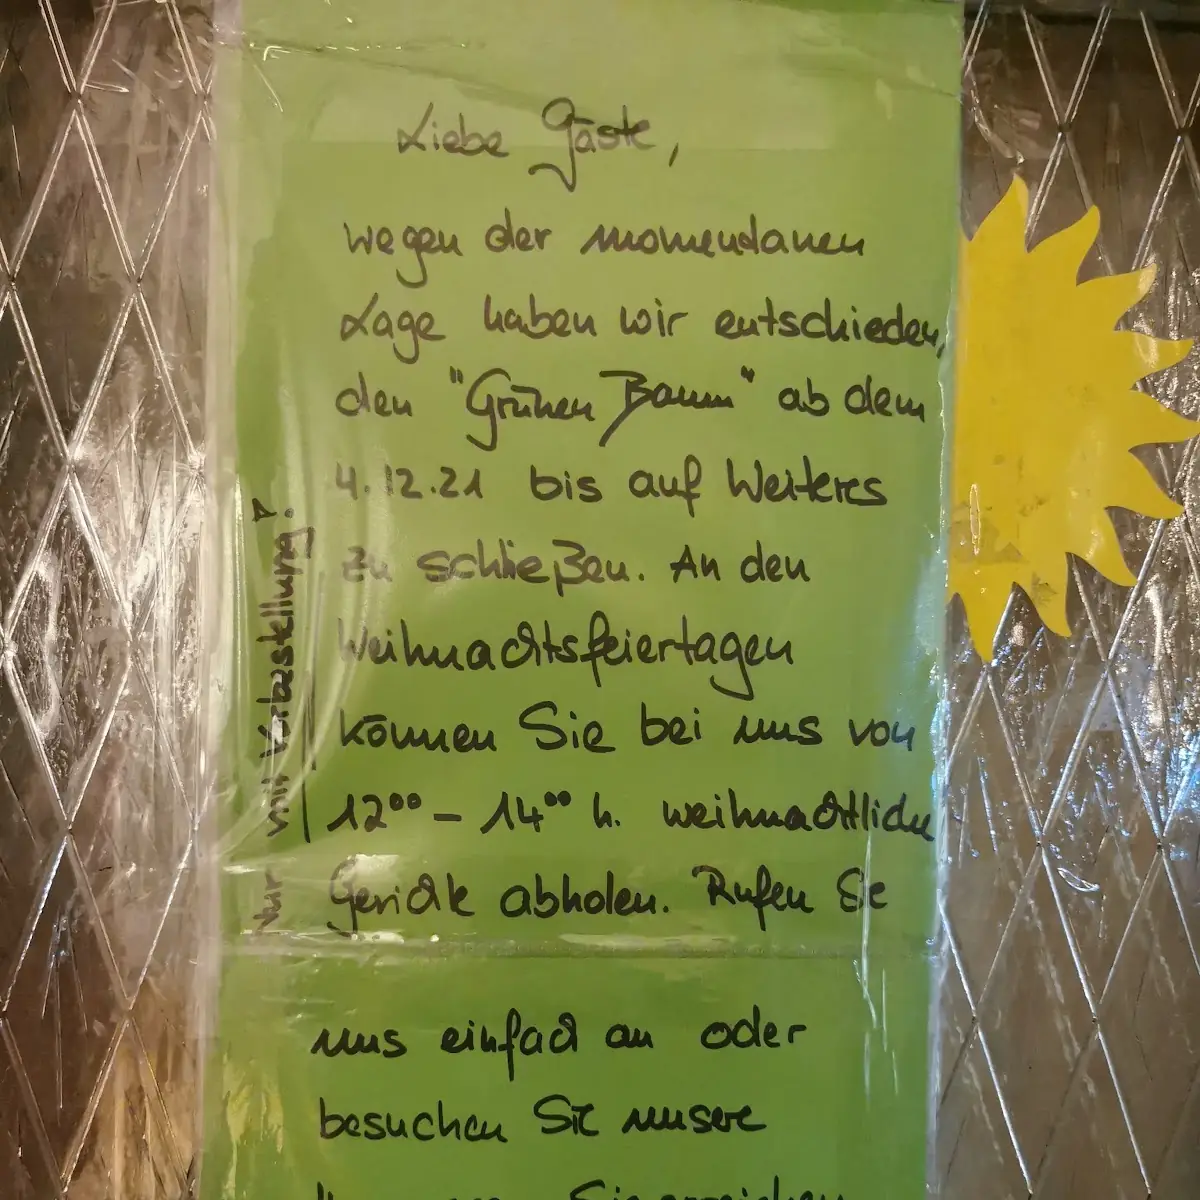 Liebe Gäste,
wegen der momentanen
Lage haben wir entschieden,
den "Grünen Baum" ab dem
4.12.21 bis auf Weiteres
zu schließen. An den
Weihnachtsfeiertagen
können Sie bei uns von
12⁰⁰ - 14⁰⁰ h. weihnachtliche
Gerichte abholen. Rufen Sie
uns einfach an oder
besuchen Sie unsere
Sie erreichen
Nur mit Vorbestellung!